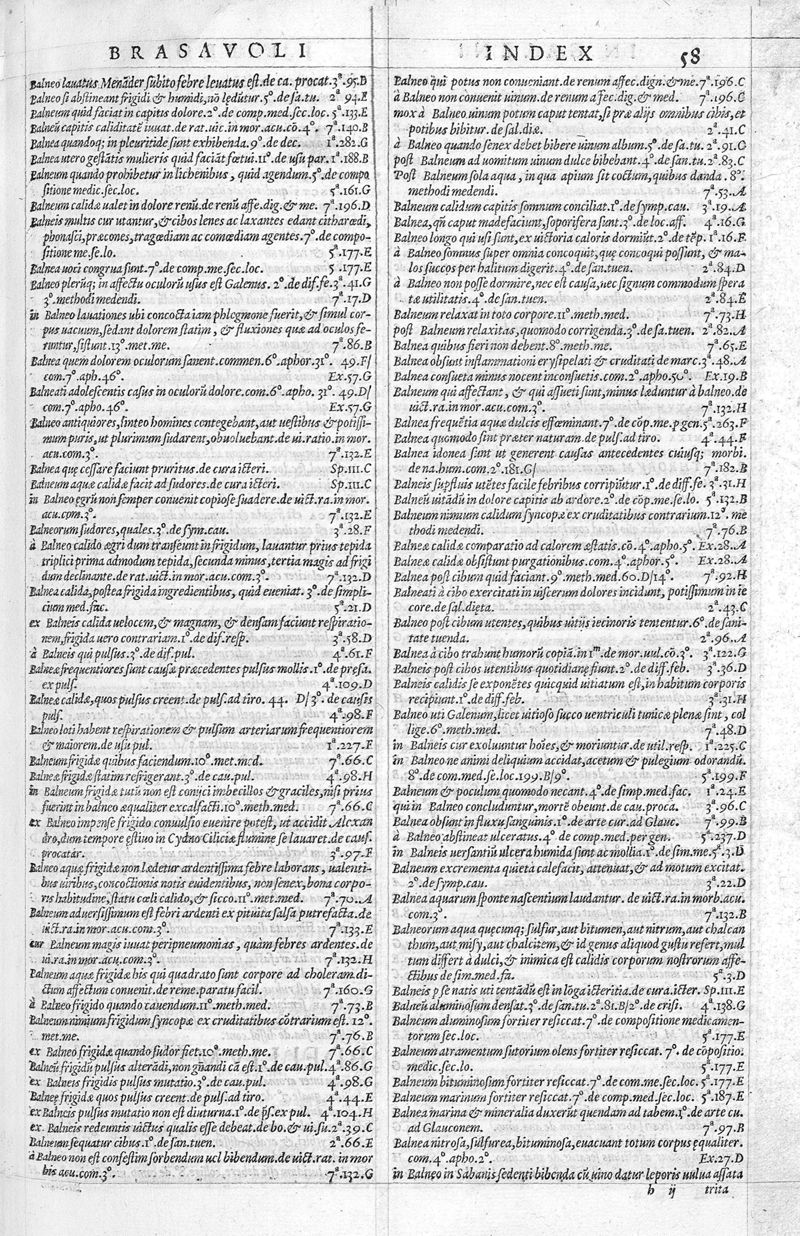 BRASAVOLI
Balneo lauatus Menãder subito febre leuatus est.de ca. procat.3ª.95.B
Balneo si abstineant frigidi & humidi,nõ lẹdũtur.5º.de sa.tu. 2ª 94.E
Balneum quid faciat in capitis dolore.2º.de comp.med.sec.loc. 5ª.133.E
Balneũ capitis caliditatẽ iuuat.de rat.uic.in mor.acu.cõ.4º. 7ª.140.B
Balnea quandoq; in pleuritide sunt exhibenda.9º.de dec. 1ª.282.G
Balnea utero gestãtis mulieris quid faciãt fœtui.11º.de usu par.1ª.188.B
Balneum quando prohibetur in lichenibus, quid agendum.5º.de compo
sitione medic.sec.loc. 5ª.161.G
Balneum calidæ ualet in dolore renũ.de renũ affe.dig.& me. 7ª.196.D
Balneis multis cur utantur,& cibos lenes ac laxantes edant citharœdi,
phonasci,præcones,tragœdiam ac comœdiam agentes.7º.de compo-
sitione me.se.lo. 5ª.177.E
Balnea uoci congrua sunt.7º.de comp.me.sec.loc. 5ª.177.E
Balneo plerũq; in affectu oculorũ usus est Galenus. 2º.de dif.fe.3ª.41.G
3º.methodi medendi. 7ª.17.D
in Balneo lauationes ubi concocta iam phlegmone fuerit,& simul cor-
pus uacuum,sedant dolorem statim, & fluxiones quæ ad oculos fe-
runtur,sistunt.13º.met.me. 7ª.86.B
Balnea quem dolorem oculorum sanent.commen.6º.aphor.31º. 49.F/
com.7º.aph.46º. Ex.57.G
Balneati adolescentis casus in oculorũ dolore.com.6º.apho. 31º. 49.D/
com.7º.apho.46º. Ex.57.G
Balneo antiquiores,linteo homines contegebant,aut uestibus & potissi-
mum puris,ut plurimum sudarent,obuoluebant.de ui.ratio.in mor.
acu.com.3º. 7ª.132.E
Balnea quę cessare faciunt pruritus.de cura icteri. Sp.111.C
Balneum aquæ calidæ facit ad sudores.de cura icteri. Sp.111.C
in Balneo ęgrũ non semper conuenit copiose suadere.de uict.ra.in mor.
acu.com.3º. 7ª.132.E
Balneorum sudores,quales.3º.de sym.cau. 3ª.28.F
à Balneo calido ægri dum transeunt in frigidum, lauantur prius tepida
triplici prima admodum tepida,secunda minus,tertia magis ad frigi
dum declinante.de rat.uict.in mor.acu.com.3º. 7ª.132.D
Balnea calida,postea frigida ingredientibus, quid eueniat. 3º.de simpli-
cium med.fac. 5ª.21.D
ex Balneis calida uelocem,& magnam, & densam faciunt respiratio-
nem,frigida uero contrariam.1º.de dif.resp. 3ª.58.D
à Balneis qui pulsus.3º.de dif.pul. 4ª.61.F
Balneæ frequentiores sunt causæ præcedentes pulsus mollis.1º.de præsa.
ex puls. 4ª.109.D
Balneæ calidæ,quos pulsus creent.de puls.ad tiro. 44. D/3º.de causis
puls. 4ª.98.F
Balneo loti habent respirationem & pulsum arteriarum frequentiorem
& maiorem.de usu pul. 1ª.227.E
Balneum frigidæ quibus faciendum.10º.met.med. 7ª.66.C
Balneæ frigidæ statim refrigerant.3º.de cau.pul. 4ª.98.H
in Balneum frigidæ tutũ non est conijci imbecillos & graciles,nisi prius
fuerint in balneo æqualiter excalfacti.10º.meth.med. 7ª.66.C
ex Balneo impense frigido conuulsio euenire potest, ut accidit Alexan
dro,dum tempore æstiuo in Cydno Ciliciæ flumine se lauaret.de caus.
procatar. 3ª.97.F
Balneo aquæ frigidæ non lædetur ardentissima febre laborans, ualenti-
bus uiribus,concoctionis notis euidentibus, non senex,bona corpo-
ris habitudine,statu cœli calido,& sicco.11º.met.med. 7ª.70.A
Balneum aduersissimum est febri ardenti ex pituita salsa putrefacta.de
uict.ra.in mor.acu.com.3º. 7ª.133.E
cur Balneum magis iuuat peripneumonias, quàm febres ardentes.de
ui.ra.in mor.acu.com.3º. 7ª.132.H
Balneum aquæ frigidæ his qui quadrato sunt corpore ad choleram.di-
ctum affectum conuenit.de reme.paratu facil. 7ª.160.G
à Balneo frigido quando cauendum.11º.meth.med. 7ª.73.B
Balneum nimium frigidum syncopæ ex cruditatibus cõtrarium est. 12º.
met.me. 7ª.76.B
ex Balneo frigidæ quando sudor fiet.10º.meth.me. 7ª.66.C
Balneũ frigidũ pulsus alterãdi,non gñandi cã est.1º.de cau.pul.4ª.86.G
ex Balneis frigidis pulsus mutatio.3º.de cau.pul. 4ª.98.G
Balneę frigidæ quos pulsus creent.de puls.ad tiro. 4ª.44.E
ex Balneis pulsus mutatio non est diuturna.1º.de p̃s.ex pul. 4ª.104.H
ex Balneis redeuntis uictus qualis esse debeat.de bo.& ui.su.2ª.39.C
Balneum sequatur cibus.1º.de san.tuen. 2ª.66.E
à Balneo non est confestim sorbendum uel bibendum.de uict.rat.in mor
bis acu.com.3º. 7ª.132.G
INDEX 58
Balneo qui potus non conueniant.de renum affec.dign.& me.7ª.196.C
à Balneo non conuenit uinum.de renum affec.dig.& med. 7ª.196.C
mox à Balneo uinum potum caput tentat,si præ alijs omnibus cibis,et
potibus bibitur.de sal.diæ. 2ª.41.C
à Balneo quando senex debet bibere uinum album.5º.de sa.tu. 2ª.91.G
post Balneum ad uomitum uinum dulce bibebant.4º.de san.tu.2ª.83.C
Post Balneum sola aqua, in qua apium sit coctum,quibus danda. 8º.
methodi medendi. 7ª.53.A
Balneum calidum capitis somnum conciliat.1º.de symp.cau. 3ª.19.A
Balnea,qñ caput madefaciunt,soporifera sunt.3º.de loc.aff. 4ª.16.G
Balneo longo qui usi sunt,ex uictoria caloris dormiũt.2º.de tẽp. 1ª.16.F
à Balneo somnus super omnia concoquit,quę concoqui possunt,& ma-
los succos per halitum digerit.4º.de san.tuen. 2ª.84.D
à Balneo non posse dormire,nec est causa,nec signum commodum spera
tæ utilitatis.4º.de san.tuen. 2ª.84.E
Balneum relaxat in toto corpore.11º.meth.med. 7ª.73.H
post Balneum relaxitas,quomodo corrigenda.3º.de sa.tuen. 2ª.82.A
Balnea quibus fieri non debent.8º.meth.me. 7ª.65.E
Balnea obsunt inflammationi erysipelati & cruditati de marc.3ª.48.A
Balnea consueta minus nocent inconsuetis.com.2º.apho.50º. Ex.19.B
Balneum qui affectant, & qui assueti sunt,minus læduntur à balneo.de
uict.ra.in mor.acu.com.3º. 7ª.132.H
Balnea frequẽtia aquæ dulcis effœminant.7º.de cõp.me.p gen.5ª.263.F
Balnea quomodo sint præter naturam.de puls.ad tiro. 4ª.44.F
Balnea idonea sunt ut generent causas antecedentes cuiusq; morbi.
de na.hum.com.2º.181.G/ 7ª.182.B
Balneis supfluis utẽtes facile febribus corripiũtur.1º.de diff.fe. 3ª.31.H
Balneũ uitãdũ in dolore capitis ab ardore.2º.de cõp.me.se.lo. 5ª.132.B
Balneum nimum calidum syncopæ ex cruditatibus contrarium.12º. me
thodi medendi. 7ª.76.B
Balneæ calidæ comparatio ad calorem æstatis.cõ.4º.apho.5º. Ex.28.A
Balneæ calidæ obsistunt purgationibus.com.4º.aphor.5º. Ex.28.A
Balnea post cibum quid faciant.9º.meth.med.60.D/14º. 7ª.92.H
Balneati à cibo exercitati in uiscerum dolores incidunt, potissimum in ie
core.de sal.dieta. 2ª.43.C
Balneo post cibum utentes,quibus uitijs iecinoris tententur.6º.de sani-
tate tuenda. 2ª.96.A
Balnea à cibo trahunt humorũ copiã.in 1m.de mor.uul.cõ.3º. 3ª.122.G
Balneis post cibos utentibus quotidianę fiunt.2º.de diff.feb. 3ª.36.D
Balneis calidis se exponẽtes quicquid uitiatum est,in habitum corporis
recipiunt.1º.de diff.feb. 3ª.31.H
Balneo uti Galenum,licet uitioso succo uentriculi tunicæ plenæ sint, col
lige.6º.meth.med. 7ª.48.D
in Balneis cur exoluuntur hoíes,& moriuntur.de util.resp. 1ª.225.C
in Balneo ne animi deliquium accidat,acetum & pulegium odorandũ.
8º.de com.med.se.loc.199.B/9º. 5ª.199.F
Balneum & poculum quomodo necant.4º.de simp.med.fac. 1ª.24.E
qui in Balneo concluduntur,mortẽ obeunt.de cau.proca. 3ª.96.C
Balnea obsunt in fluxu sanguinis.1º.de arte cur.ad Glauc. 7ª.99.B
à Balneo abstineat ulceratus.4º de comp.med.per gen. 5ª.237.D
in Balneis uersantiũ ulcera humida sunt ac mollia.1º.de sim.me.5ª.3.D
Balneum excrementa quieta calefacit, attenuat,& ad motum excitat.
2º.de symp.cau. 3ª.22.D
Balnea aquarum sponte nascentium laudantur. de uict.ra.in morb.acu.
com.3º. 7ª.132.B
Balneorum aqua quęcunq; sulfur,aut bitumen,aut nitrum,aut chalcan
thum,aut misy,aut chalcitem,& id genus aliquod gustu refert,mul
tum differt à dulci,& inimica est calidis corporum nostrorum affe-
ctibus de sim.med.fa. 5ª.3.D
Balneis p se natis uti tentãdũ est in lõga icteritia.de cura.icter. Sp.111.E
Balneũ aluminosum densat.3º.de san.tu.2ª.81.B/2º.de crisi. 4ª.138.G
Balneum aluminosum fortiter resiccat.7º.de compositione medicamen-
torum sec.loc. 5ª.177.E
Balneum atramentum sutorium olens fortiter resiccat. 7º. de cõpositio.
medic.sec.lo. 5ª.177.E
Balneum bituminosum fortiter resiccat.7º.de com.me.sec.loc. 5ª.177.E
Balneum marinum fortiter resiccat.7º.de comp.med.sec.loc. 5ª.187.E
Balnea marina & mineralia duxerũt quendam ad tabem.1º.de arte cu.
ad Glauconem. 7ª.97.B
Balnea nitrosa,sulfurea,bituminosa,euacuant totum corpus ęqualiter.
com.4º.apho.2º. Ex.27.D
in Balneo in Sabanis sedenti bibenda cũ uino datur leporis uulua assata
h ij trita